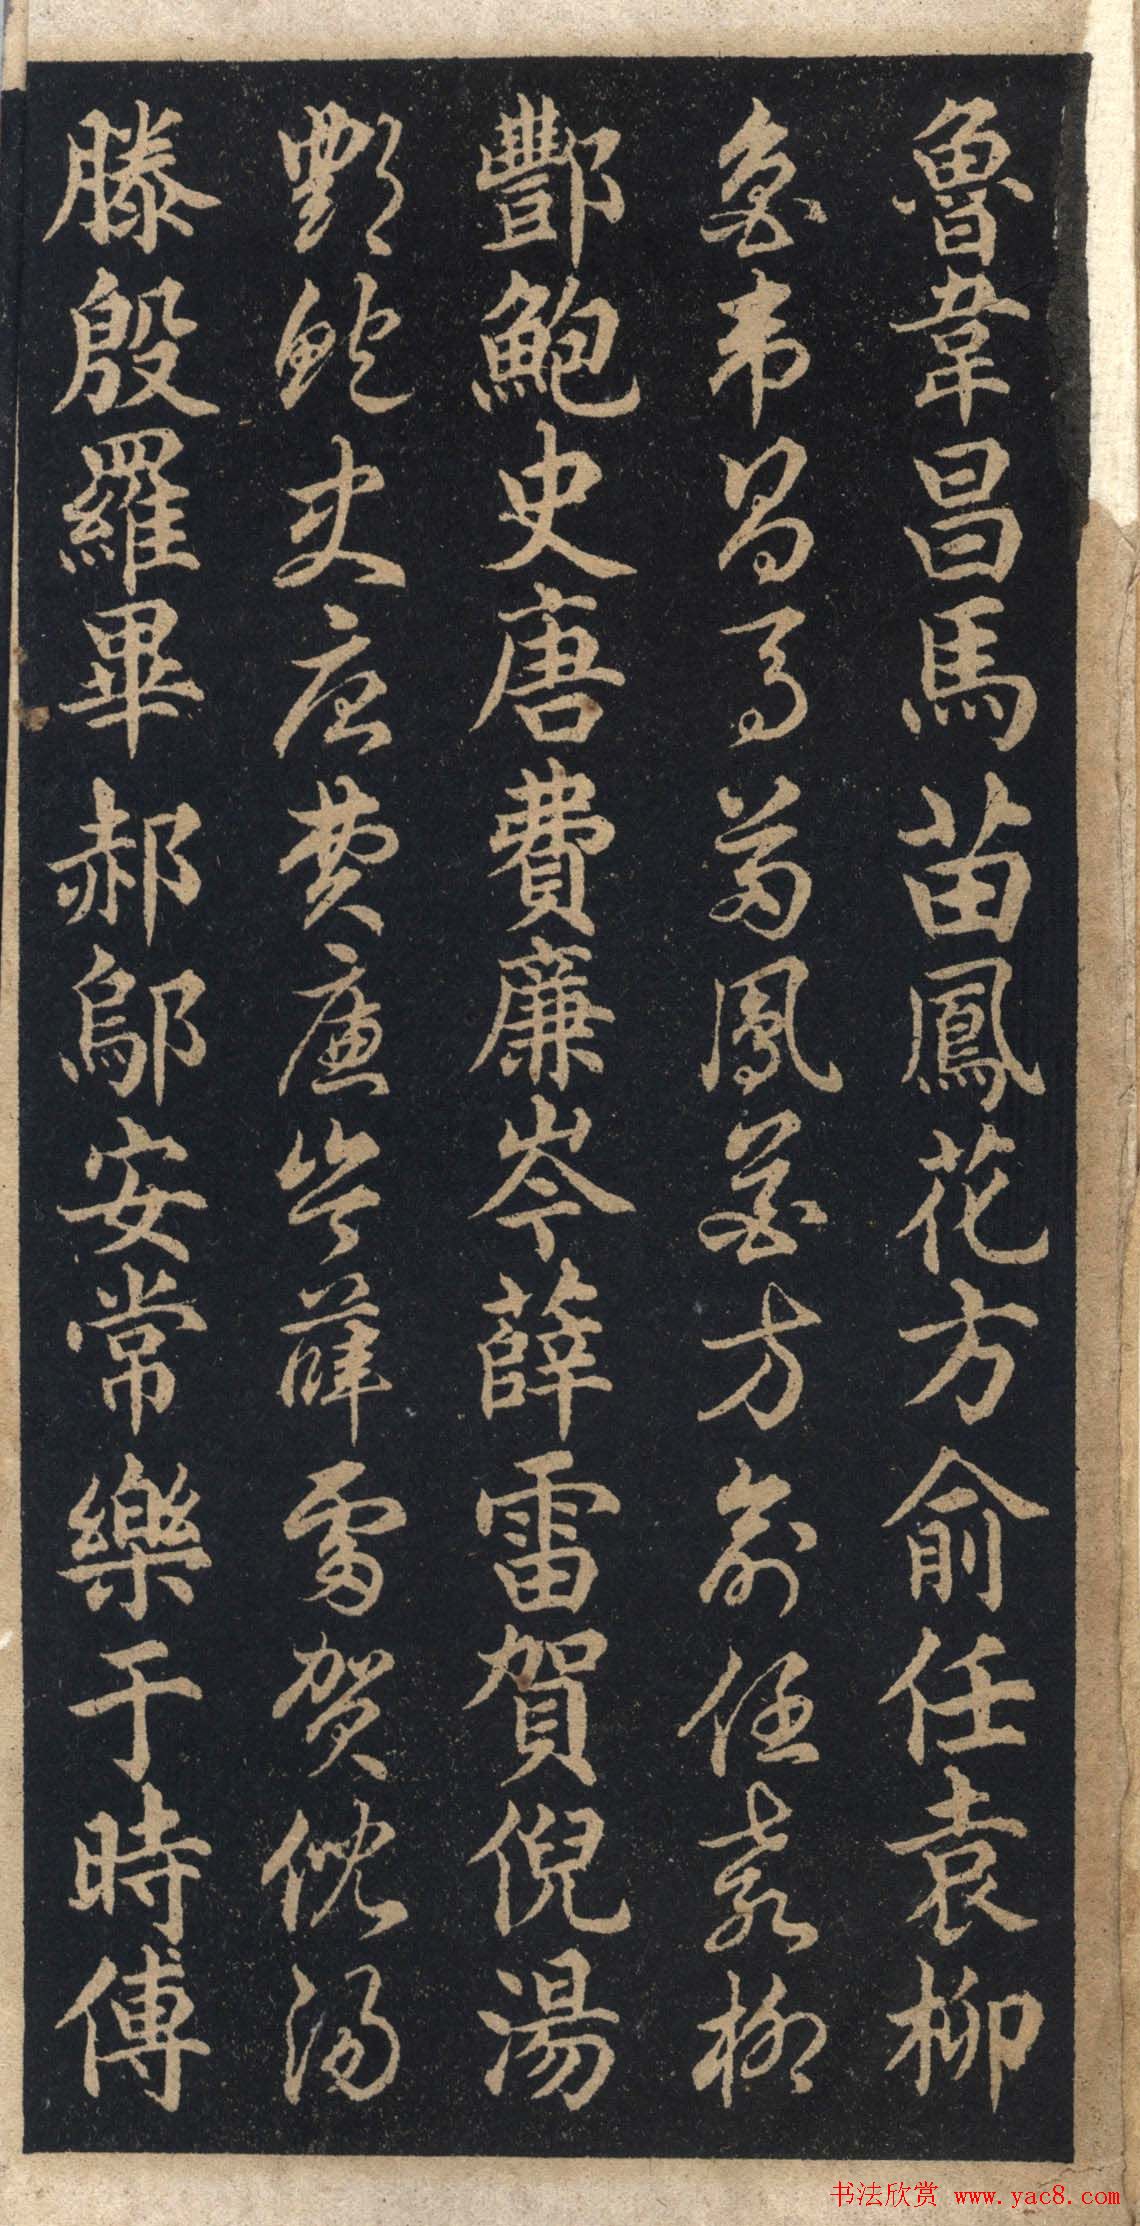 魯韋昌馬苗鳳花方俞任袁柳
魯韋昌馬苗鳳花方俞任袁柳
酆鮑史唐費廉岑薛雷賀倪湯
酆鮑史唐費廉岑薛雷賀倪湯
滕殷羅畢郝鄔安常樂于時傅
书法欣赏 www.yac8.com